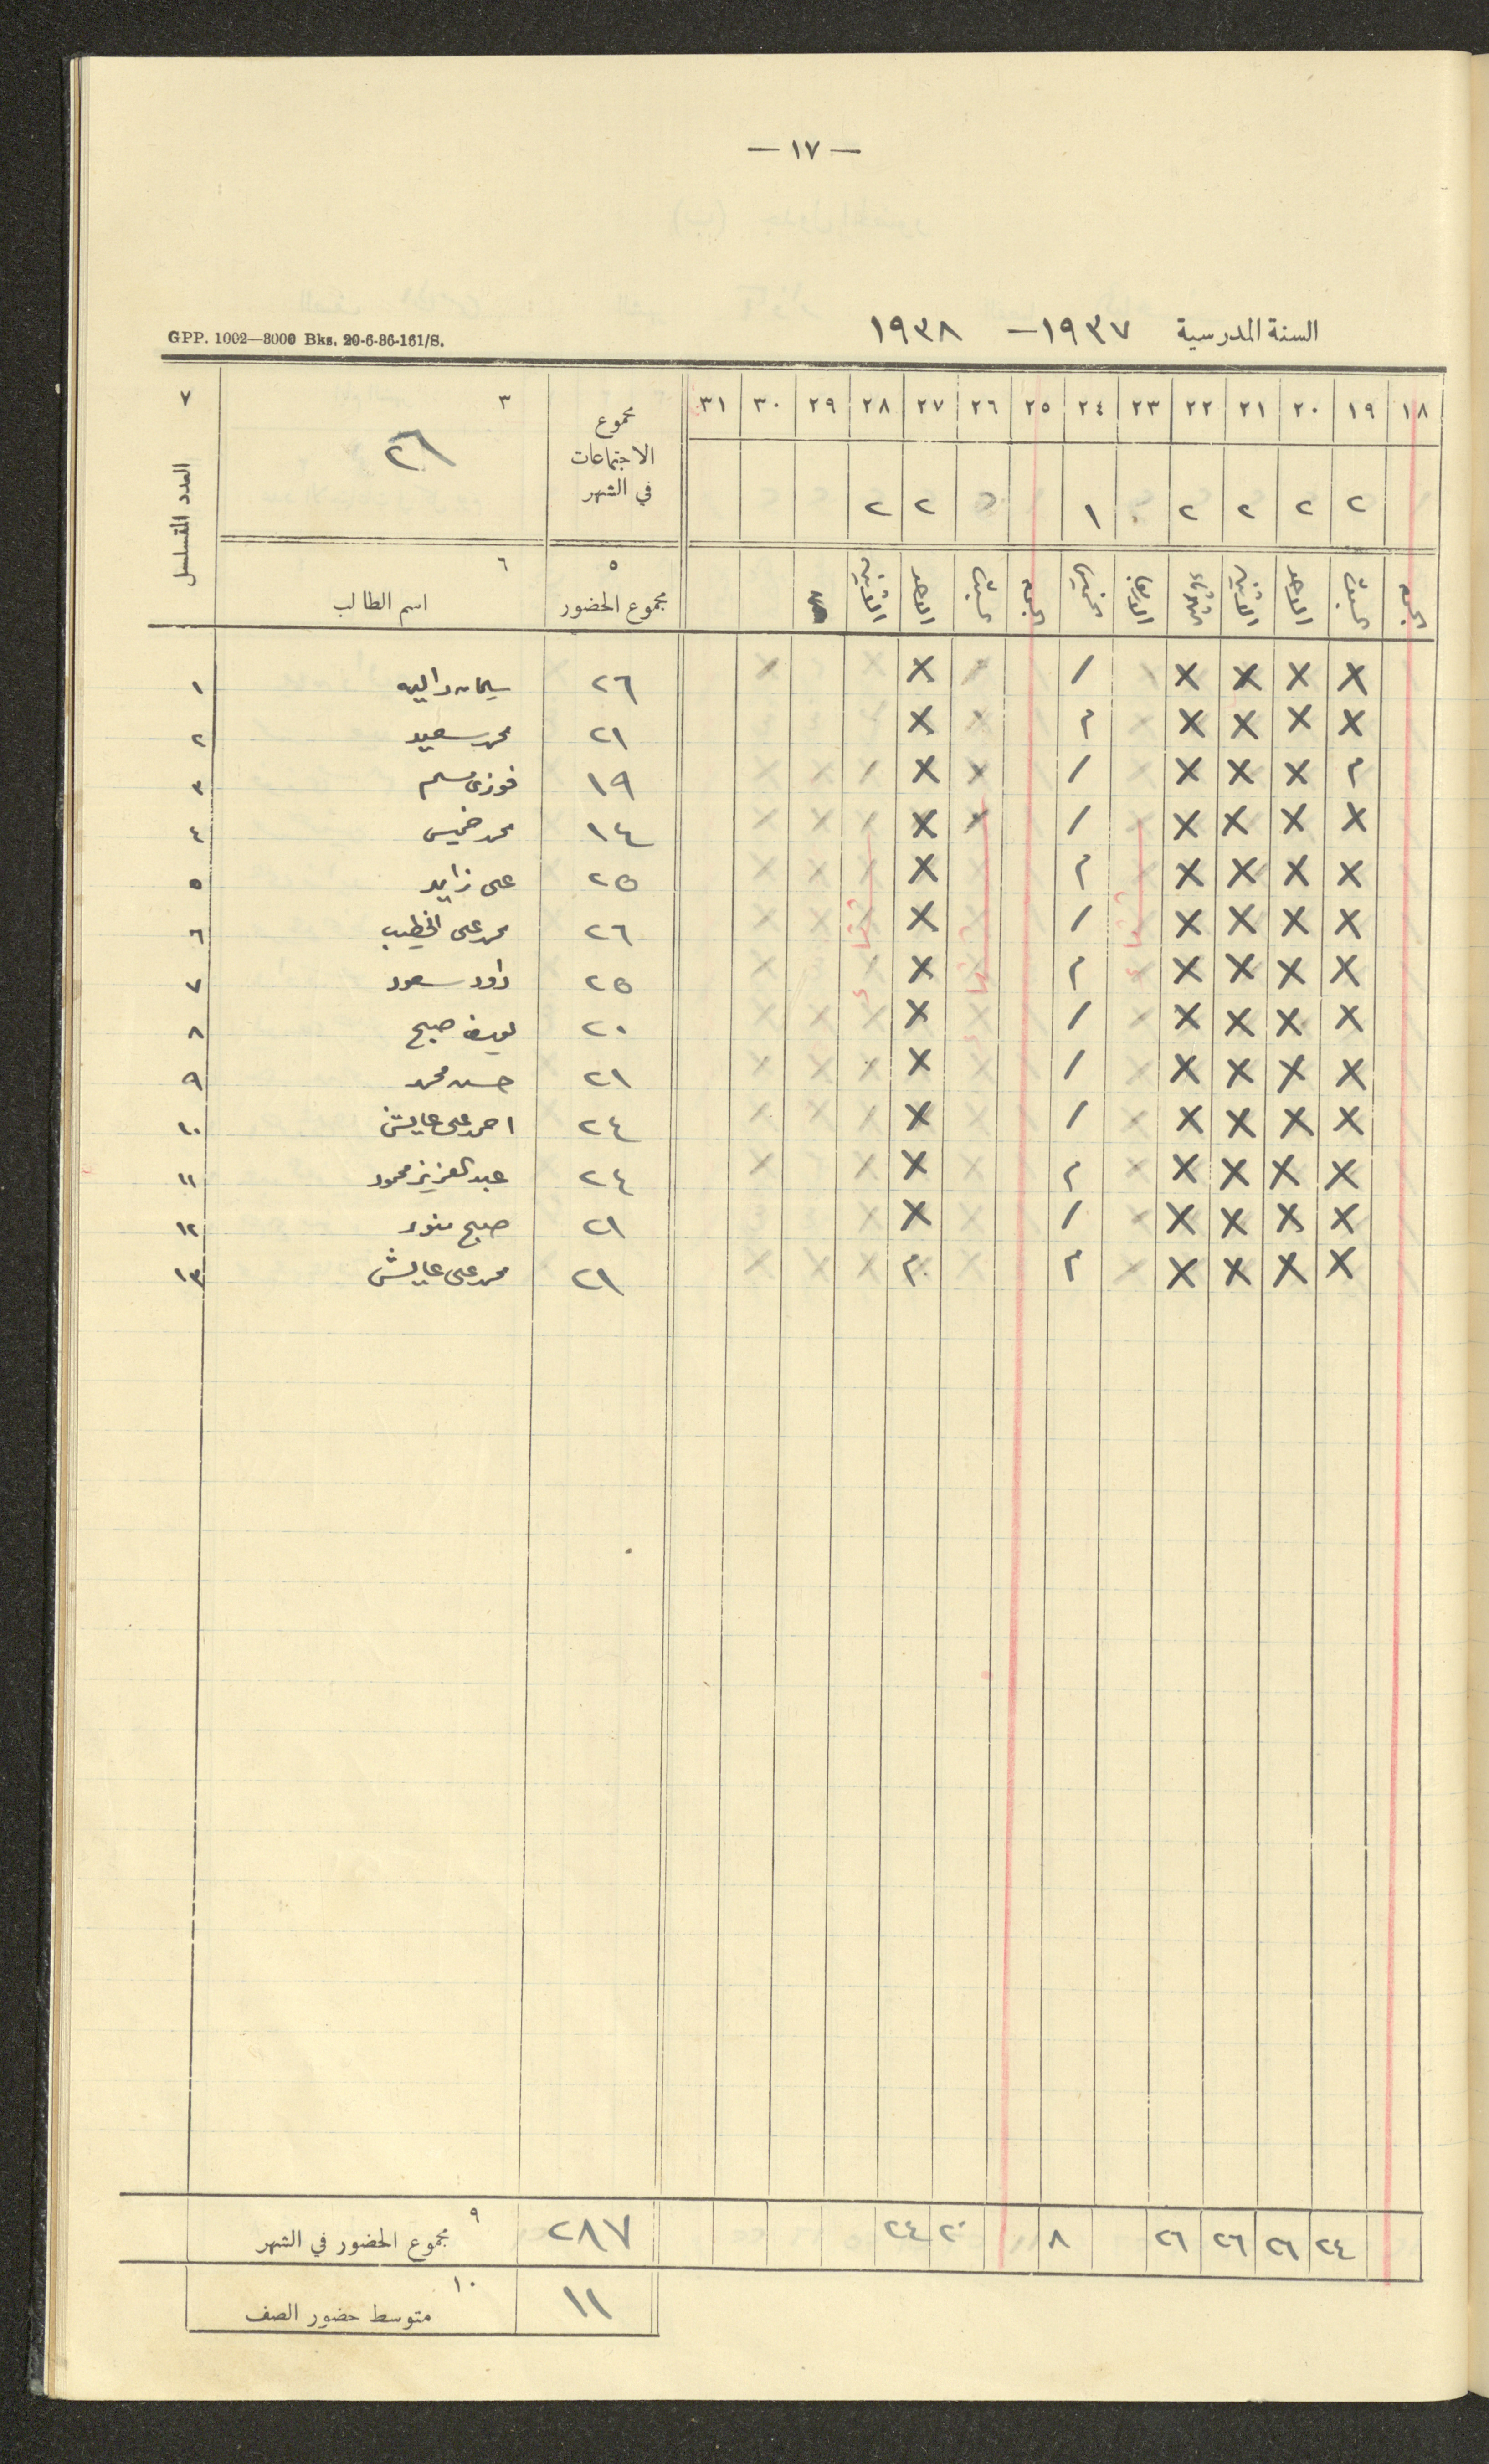 — ١٧ —
السنة المدرسية ١٩٣٧ — ١٩٣٨
GPP. 1002—8000 Bks. 20-6-36-161/S.
١٨ ١٩ ٢٠ ٢١ ٢٢ ٢٣ ٢٤ ٢٥ ٢٦ ٢٧ ٢٨ ٢٩ ٣٠ ٣١ مجموع الاجتماعات في الشهر ٣ ٢٦ ٧ العدد المتسلسل
٢ ٢ ٢ ٢ ١ ٢ ٢
الجمعه السبت الاحد الاثنين الثلاثاء الاربعا الخميس الجمعه السبت الاحد الاثنين ٥ مجموع الحضور ٦ اسم الطالب
X X X X / X ٢٦ ١
X X X X م X ٢١ محمد سعيد ٢
م X X X / X ١٩ فوزي مسلم ٣
X X X X / X ١٤ محمد خميس ٤
X X X X م X ٢٥ علي زايد ٥
X X X X / X ٢٦ محمد علي الخطيب ٦
X X X X م X ٢٥ داود سعود ٧
X X X X / X ٢٠ يوسف صبح ٨
X X X X / X ٢١ حسن محمد ٩
X X X X / X ٢٤ احمد علي عايش ١٠
X X X X م X ٢٤ عبد العزيز محمود ١١
X X X X / X ٢١ صبح منور ١٢
X X X X م م ٢١ محمد علي عايش ١٣
٢٤ ٢٦ ٢٦ ٢٦ ٨ ٢٠ ٢٤ ٢٨٧ ٩ مجموع الحضور في الشهر
١١ ١٠ متوسط حضور الصف